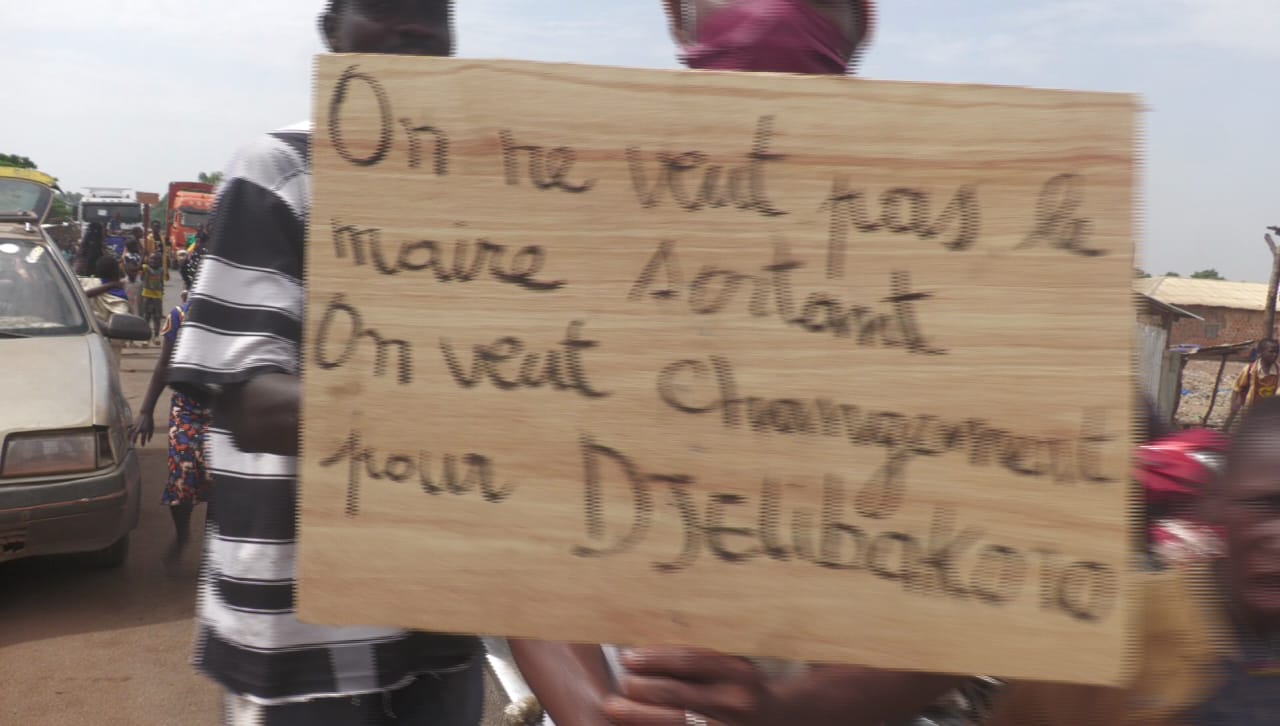 On ne veut pas le
maire sortant
On veut changement
pour Djelibakoro